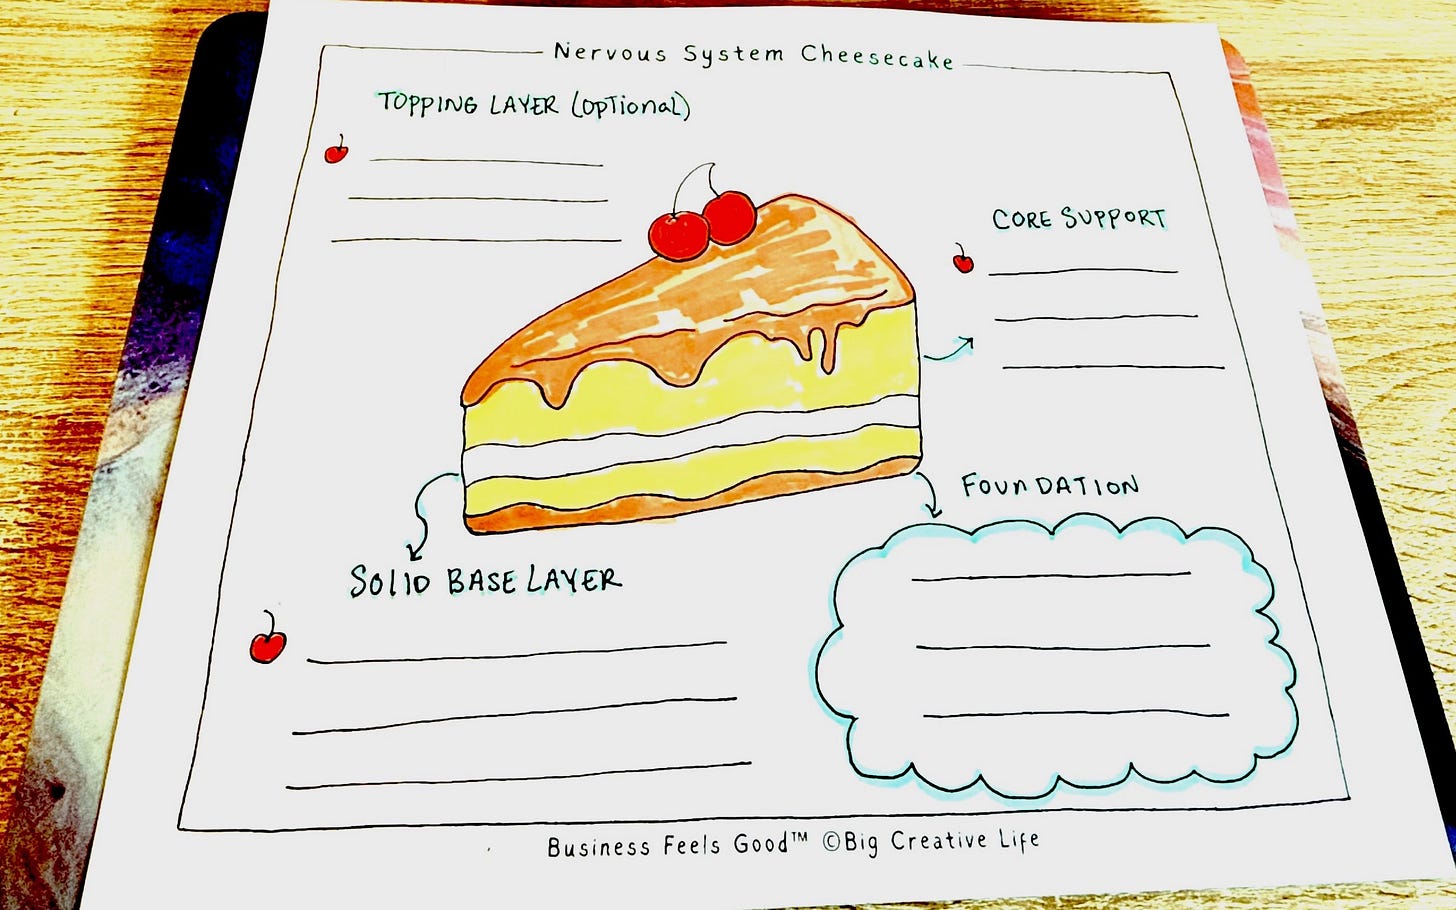 Nervous System Cheesecake
TOPPING LAYER (OPTIONAL)
CORE SUPPORT
FOUNDATION
SOLID BASE LAYER
Business Feels Good™ ©Big Creative Life